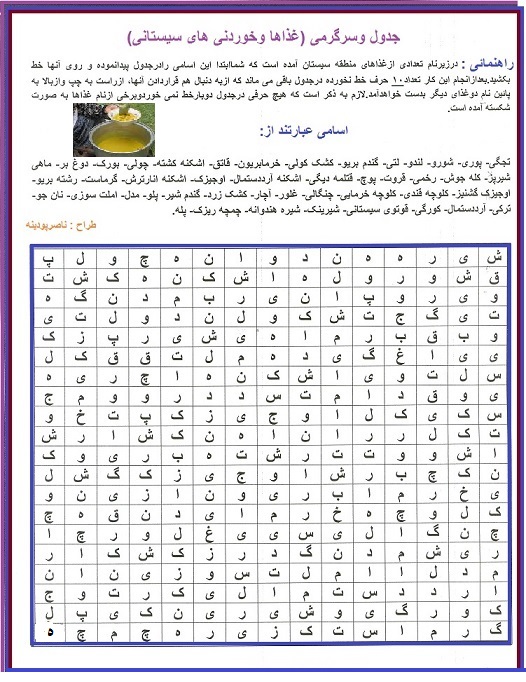 جدول وسرگرمی (غذاها وخوردنی های سیستانی)
راهنمائی : درزیرنام تعدادی ازغذاهای منطقه سیستان آمده است که شماابتدا این اسامی رادرجدول پیدانموده و روی آنها خط
بکشید.بعدازانجام این کار تعداد۱۰ حرف خط نخورده درجدول باقی می ماند که ازبه دنبال هم قراردادن آنها، ازراست به چپ وازبالا به
پائین نام دوغذای دیگر بدست خواهدآمد.لازم به ذکر است که هیچ حرفی درجدول دوبارخط نمی خوردوبرخی ازنام غذاها به صورت
شکسته آمده است.
اسامی عبارتند از:
تجگی- پوری- شورو- لندو- لتی- گندم بریو- کشک کولی- خرمابریون- قاتق- اشکنه کشته- چولی- بورک- دوغ بر- ماهی
شیرپز- کله جوش- رخمی- قروت- پوچ- قتلمه دیگی- اشکنه آرددستمال- اوجیزک- اشکنه انارترش- گرماست- رشته بریو-
اوجیزک گشنیز- کلوچه قندی- کلوچه خرمایی- چنگالی- غلور- آچار- کشک زرد- گندم شیر- پلو- مدل- املت سوزی- نان جو-
ترکی- آرددستمال- کورگی- قوتوی سیستانی- شیرینک- شیره هندوانه- چمچه ریزک- پله.
طراح : ناصرپودینه
ش ی ر ه ه ن د و ا ن ه چ و ل پ
ق ش و ر و ل ه ا ش ک ن ه ک ش ت
و ی ر و پ ا ن ی ر ب م د ن گ ه
ت ی گ ج ت ش ک و ل ن د و ل ت ی
و ب ق ب ر م ا ه ی ش ی ر پ ز ک
ی ی ا غ گ ی د ه م ل ت ق ق ک ل
س ل ت و ی ا ش ک ن ه ا چ ر ی ه
ی و ق د ا م ت س د د ر و و م ج
س ک ی ک ل ا و ج ی ز ک پ ت خ و
ت ک ل ر ر ا ن ا ه ن ک ش ا ر ش
ا ش و و ت ت ر ش ت ه ب ر ی و ک
ن ک چ ب ر ش ا و ج ی ز ک گ ش ل
ی خ ر م ا ب ر ی و ن ا ز ی ن و
ک ل و چ ه خ ر م ا ی د ن ق ه چ
چ ن گ ا ل ی س ی ی غ ل و ر چ ا
ر ی ش م د ن گ د ر ز ک ش ک ا ر
م د ل ا ا م ل ت س و ز ی ن ا ن
ا ر د د س ت م ا ل ی ک ر ت و ج
ک و ر گ ی و ش ی ر ی ن ک ی پ ل
گ ر م ا س ت ک ز ی ر ه چ م چ ه